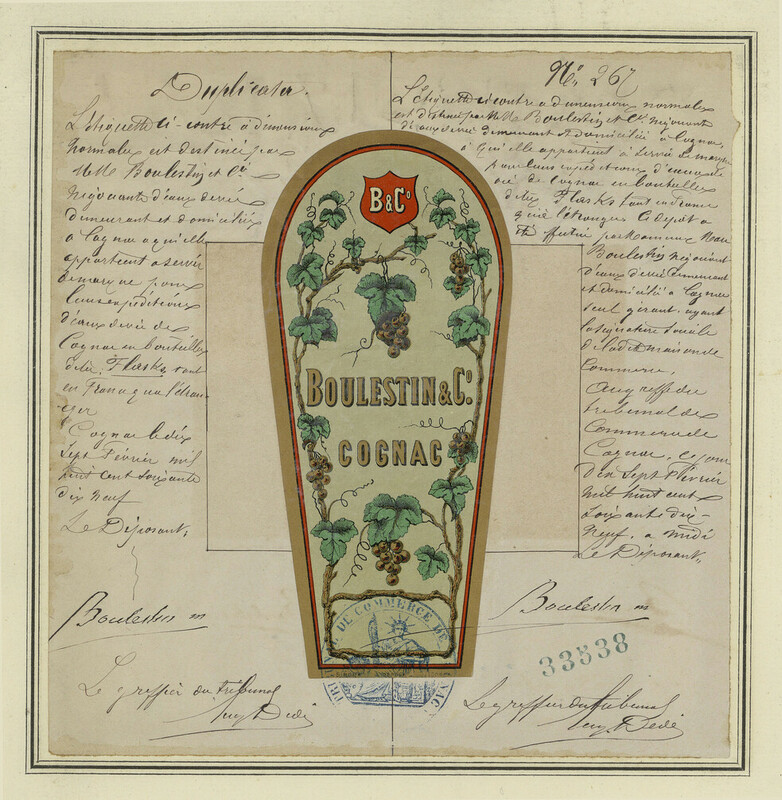 Duplicata.
L'étiquette ci-contre a dimensions
normales est destinée par
Boulestin et Cie
Négociants d'eaux de vie
demeurant et domiciliés
à Cognac a qui elle
appartient a servir
de marque pour
leurs expéditions
d'eaux de vie de
Cognac en bouteilles
dites Flasks tant
en France qu'a l'étran-
ger
Cognac le dix
Sept Février mil
huit cent soixante
dix neuf
Le Déposant,
Boulestin
Le greffier du Tribunal
No. 267
L'étiquette ci contre a dimensions normales
est destinée par Boulestin et Cie Négociants
d'eaux de vie demeurant et domiciliés à Cognac,
à qui elle appartient à servir de marque
pour leurs expéditions d'eaux de
vie de Cognac en bouteilles
dites Flasks tant en France
qu'a l'étranger. Le dépôt a
été effectué par Monsieur
Boulestin négociant
d'eaux de vie demeurant
et domicilié à Cognac
seul gérant ayant
la signature sociale
de la dite maison de
Commerce.
Au greffe du
tribunal de
Commerce de
Cognac, ce jour
dix sept Février
mil huit cent
soixante dix-
neuf, a midi
Le Déposant,
Boulestin
33538
Le greffier du tribunal
B & Co
BOULESTIN & Co.
COGNAC
DE COMMERCE DE